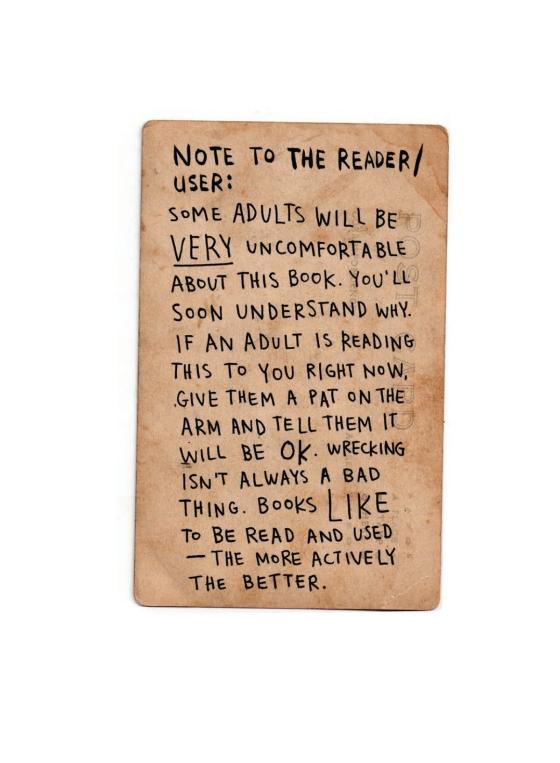 NOTE TO THE READER/
USER:
SOME ADULTS WILL BE
VERY UNCOMFORTABLE
ABOUT THIS BOOK. YOU'LL
SOON UNDERSTAND WHY.
IF AN ADULT IS READING
THIS TO YOU RIGHT NOW,
GIVE THEM A PAT ON THE
ARM AND TELL THEM IT
WILL BE OK. WRECKING
ISN'T ALWAYS A BAD
THING. BOOKS LIKE
TO BE READ AND USED
— THE MORE ACTIVELY
THE BETTER.
POST CARD